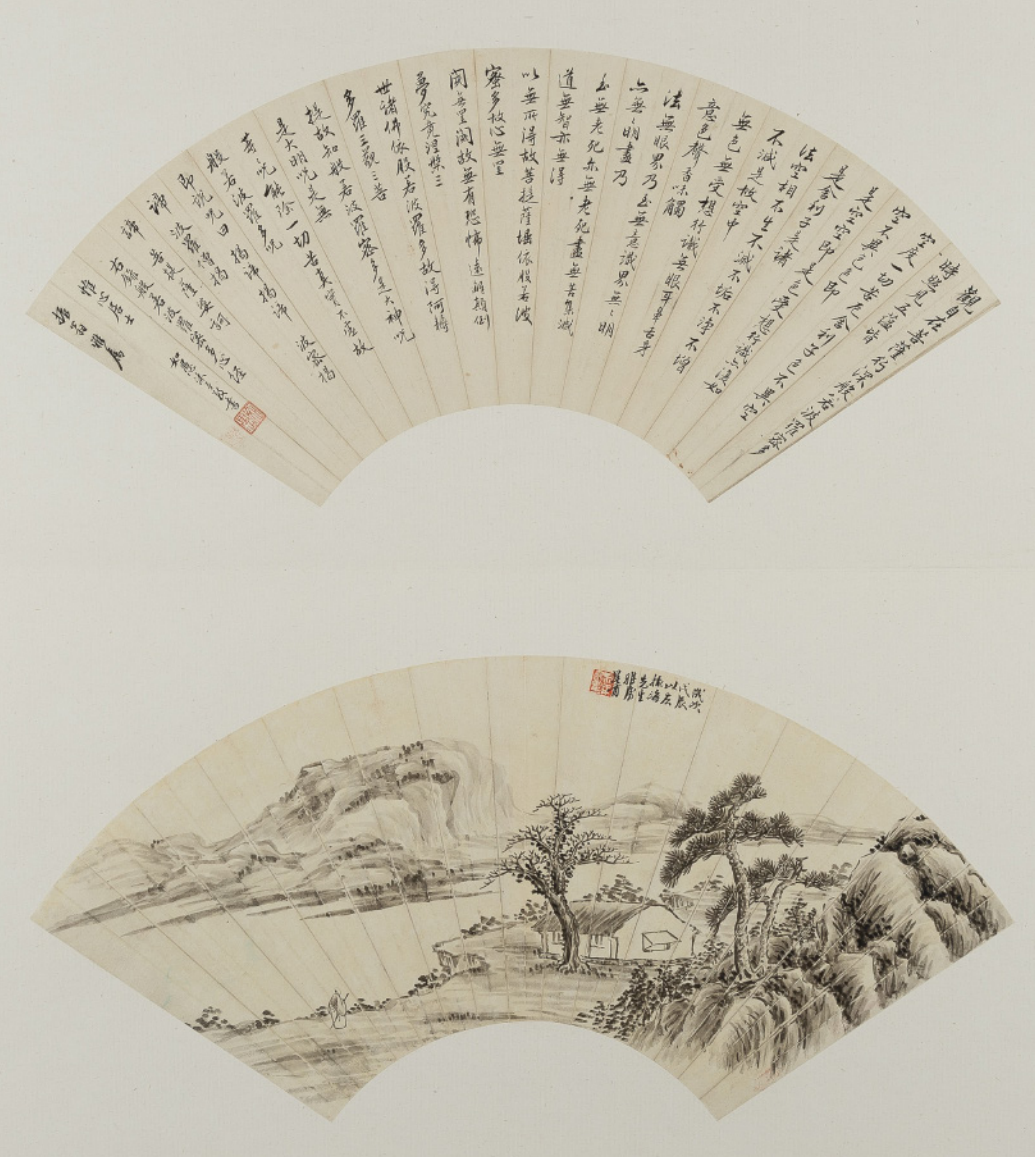 觀自在菩薩行深般若波羅密多
時照見五蘊皆
空度一切苦厄舍利子色不異空
空不異色色即
是空空即是色受想行識亦復如
是舍利子是諸
法空相不生不滅不垢不淨不增
不減是故空中
無色無受想行識無眼耳鼻舌身
意色聲香味觸
法無眼界乃至無意識界無〻明
亦無〻明盡乃
至無老死亦無老死盡無苦集滅
道無智亦無得
以無所得故菩提薩埵依般若波
密多故心無罣
閡無罣閡故無有恐怖遠離顛倒
夢究竟涅槃三
世諸佛依般若波羅多故得阿耨
多羅三藐三菩
提故知般若波羅密多是大神咒
是大明咒是無
等咒能除一切苦真實不虛故
般若波羅多咒
即說咒曰 揭諦揭諦 波羅揭
諦 波羅僧揭
諦 菩提薩婆訶
右錄般若波羅密多心經
惟心居士
戊辰
先生
雅屬